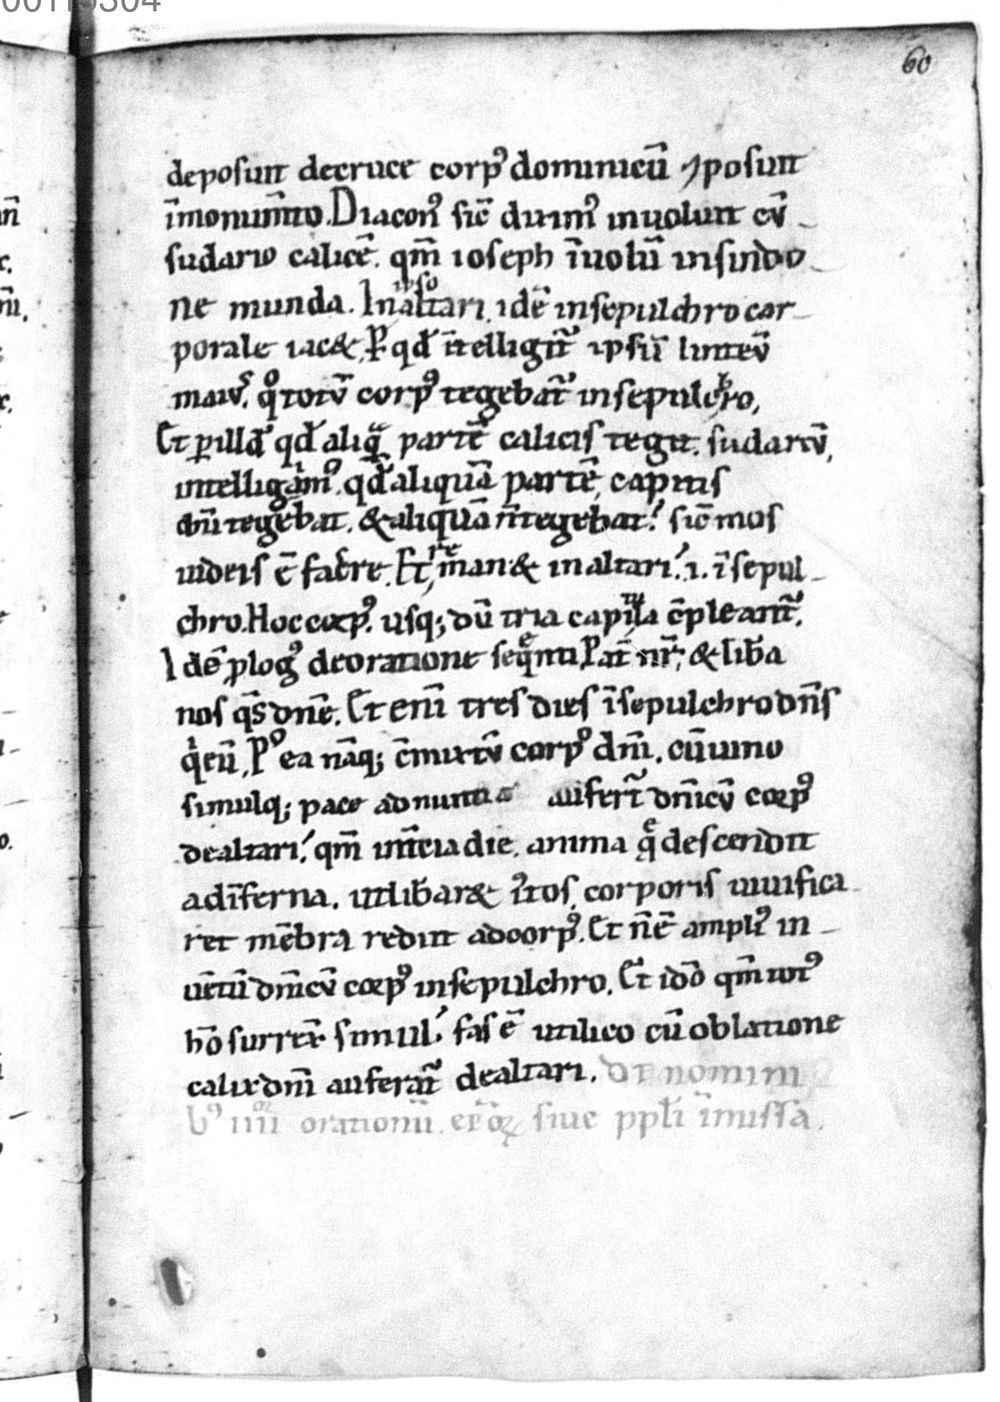 60
deposuit decruce corpꝰ dominicū ⁊posuit
īmonum̄to. Diacon̄ꝰ sic̄ dixim̄ꝰ inuoluit cū
sudario calicē. qm̄ ioseph īuolū insindo
ne munda. In ipso altari. idē insepulchro cor
porale iac&. P qđ īntelligit̄ ipsū linteū
maiꝰ. qͦ totū corpꝰ tegebat̄ insepulchro,
Et ꝑ illđ qđ aliqᷓ partē calicis tegit sudariū,
intelligam̄ꝰ. qđ aliquā partē, capitis
dn̄i tegebat. & aliquā n̄ tegebat. sic̄ mos
iudeis ē facere. Et, reman& inaltari. .i. īsepul
chro. Hoc corpꝰ. usq; dū tria capitula c̄pleant̄.
Idē ꝓlogꝰ deoratione seqn̄ti Pat̄ nr̄; & lib̄a
nos qs̄ dn̄e. Et enī tres dies īsepulchro dn̄s
qeū, Pͦ ea nāq; c̄mixtū corpꝰ dn̄i, cū uino
simulq; pace adnuntia aufert̄ dn̄icū corpꝰ
dealtari. qm̄ int̄cia die. anima q̄ descendit
adīferna. ut lib̄ar& īt̄os, corporis uiuifica
ret mēbra rediit adcorpꝰ. Et n̄ ē ampliꝰ in
uētū dn̄icū corpꝰ insepulchro. Et idō qm̄ totꝰ
hō surrex̄ simul. fas ē utilico cū oblatione
calix dn̄i auferat̄ dealtari. De nomini
bꝰ iiii orationū. siue ppl̄i īmissa.